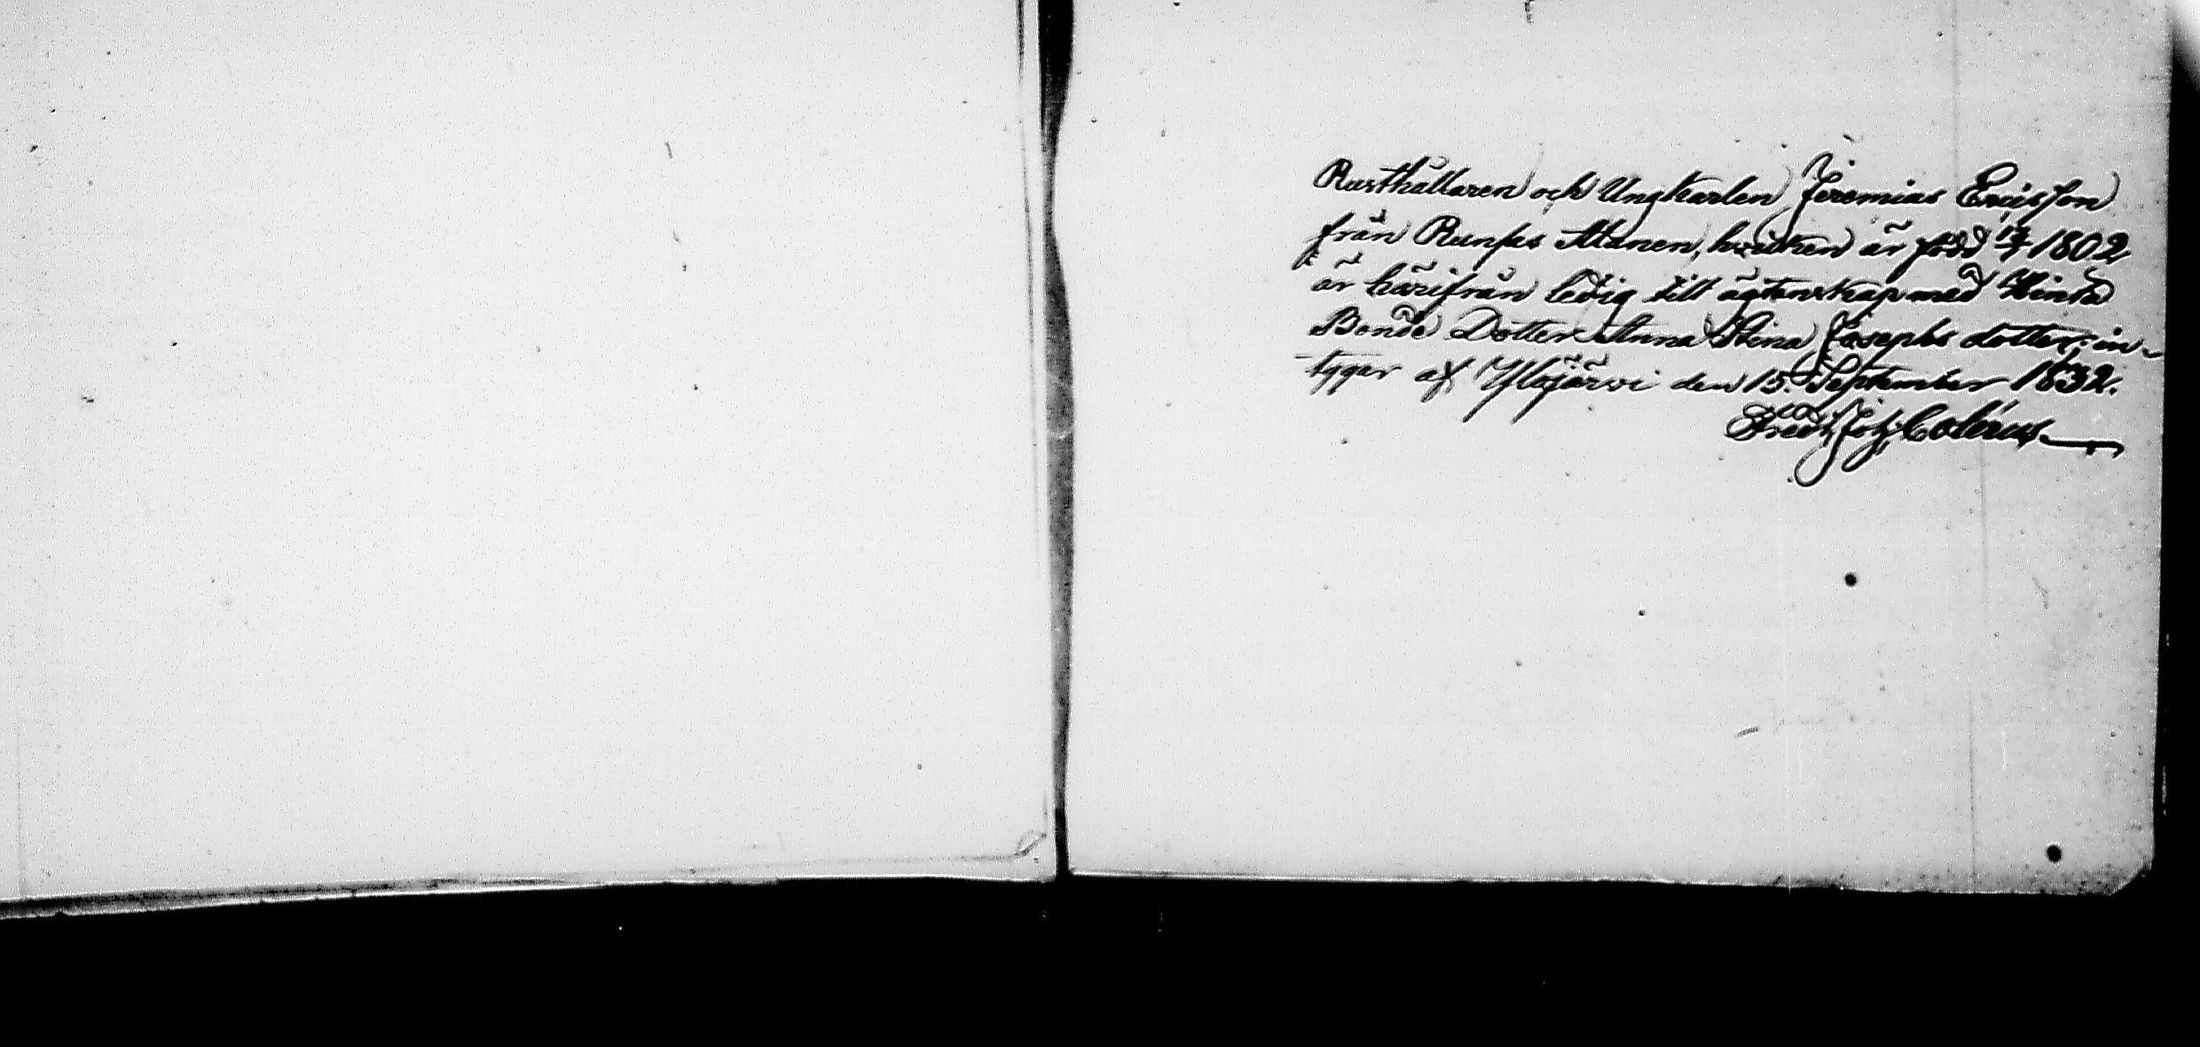 Rusthållaren och Ungkarlen Jeremias Ericsson
från Runsas Manen, hvilken är född 17/7 1802
är härifrån ledig till ägtenskap med
Bonde Dotter Anna Stina Josephs dotter; in-
tygar af Ylöjärvi den 15. September 1832.
Fredr. Joh. Calenius